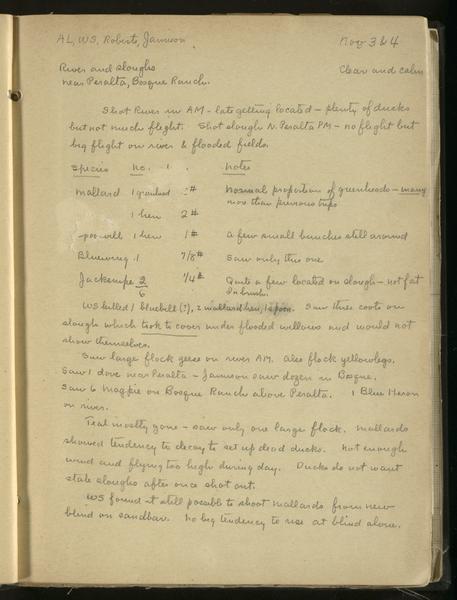 AL, WS, Roberts, Jamison Nov 3 & 4
River and sloughs Clear and calm
near Peralta, Bosque Ranch.
Shot River in AM - late getting located - plenty of ducks
but not much flight. Shot slough N. Peralta PM - no flight but
big flight on river & flooded fields.
Species no. notes
Mallard 1 greenhead # Normal proportion of greenheads - many
more than previous trips
1 hen 2#
1 hen 1# A few small bunches still around
Bluewing 1 7/8# Saw only this one
Jacksnipe 2 1/4# Quite a few located on slough - not fat
6
WS killed 1 bluebill (?), 2 mallard hen, 1 spoon. Saw three coots on
slough which took to cover under flooded willows and would not
show themselves.
Saw large flock geese on river AM. Also flock yellowlegs.
Saw 1 dove near Peralta - Jamison saw dozen in Bosque.
Saw 6 magpie on Bosque Ranch above Peralta. 1 Blue Heron
on river.
Teal mostly gone - saw only one large flock. Mallards
showed tendency to decoy to set up dead ducks. Not enough
wind and flying too high during day. Ducks do not want
stale sloughs after once shot out.
WS found it still possible to shoot mallards from new
blind on sandbar. No big tendency to use at blind alone.